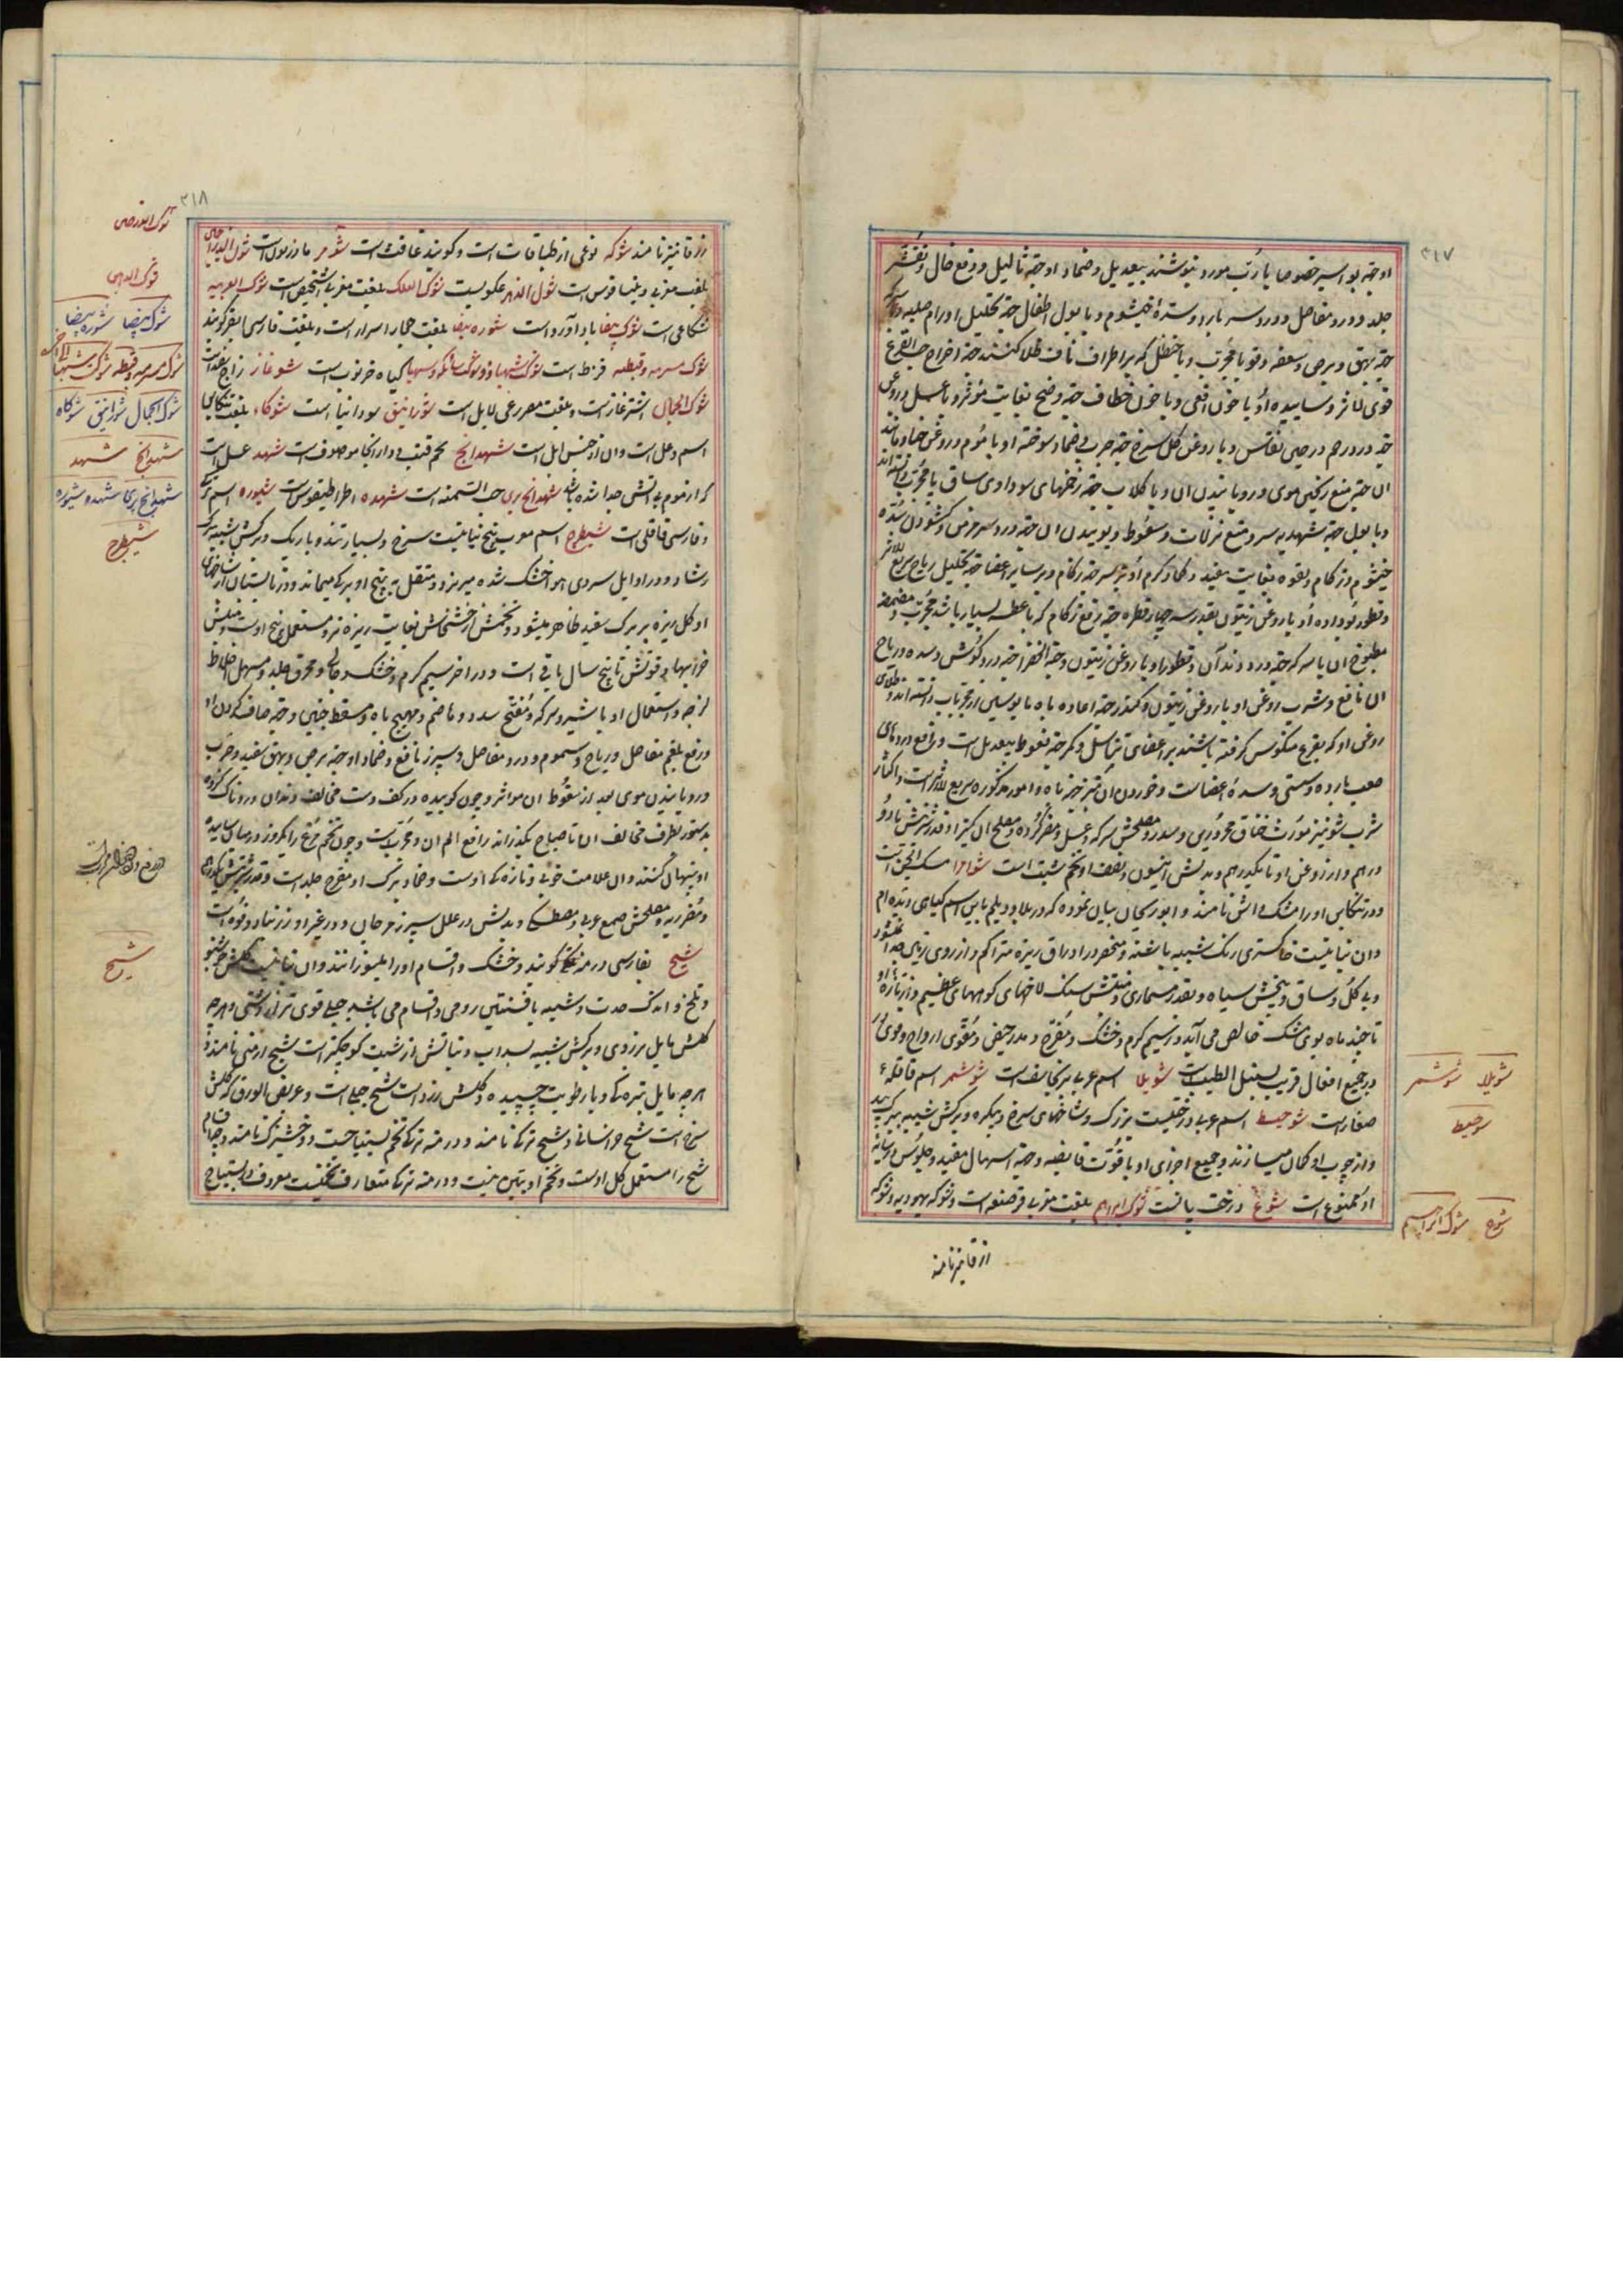 ۳۱۷
او جهة بواسیر خصوصا با رُب مورد بنوشند بیعدیل و ضماد او جهة ثالیل و رفع خال و تقشر
جلد و درد مفاصل و درد سر بارد و سدهٔ خیشوم و با بول اطفال جهة تحلیل اورام صلبه و با سرکه
جهة بهق و برص و سعفه و قوبا مجرب و با حنظل که بر اطراف ناف طلا کنند جهة اخراج حب القرع
قوی الاثر و ساییده او با خون افعی و با خون خطاف جهة وضح بغایت مؤثر و با عسل و روغن
جهة درد رحم در حین نفاس و با روغن گل سرخ جهة جرب و ضماد سوخته او با موم و روغن حنا و مانند
ان جهة منع ریختن موی و رویانیدن ان و با گلاب جهة زخمهای سوداوی ساق پا مجرب دانسته اند
و با بول جهة شهدیه سر و منع نزلات و سعوط و بوییدن ان جهة درد سر مزمن و گشودن سدهٔ
خیشوم و زکام و لقوه بغایت مفید و کماد گرم او بر سر جهة زکام و بر سایر اعضا جهة تحلیل ریاح سریع الاثر
و قطور بو داده او با روغن زیتون بقدر سه چهار قطره جهة رفع زکام که با عطسه بسیار باشد مجرب و مضمضه
مطبوخ ان با سرکه جهة درد دندان و قطور او با روغن زیتون و حبة الخضرا جهة درد گوش و سده و ریاح
ان نافع و شرب روغن او با روغن زیتون و کندر جهة اعاده باه مایوسین از مجربات دانسته اند و طلای
روغن او که بقرع منکوس گرفته باشند بر اعضای تناسل و کمر جهة نعوظ بیعدیل است و رافع دردهای
صعب بارده و سستی و سدهٔ اعضاست و خوردن ان نیز جهة باه و امور مذکوره سریع الاثر است و اکثار
شرب شونیز مورث خناق محروری و سدر و مصلحش سرکه و عسل و مضر گرده و مصلح ان کتیرا و قدر شربتش تا دو
درهم و از روغن او تا یکدرهم و بدلش انیسون و نصف او تخم شبت است شواصرا مسک الجن است
و در تنکابن او را مشک داش نامند و ابوریحان بیان نموده که در بلاد دیلم باین اسم گیاهی دیده ام
و ان نباتیست خاکستری رنگ شبیه بافسنتین و منحصر در اوراق ریزه متراکم و از روی زمین جدا نمیشود
و بی گل و ساق و بیخش سیاه و بقدر مسماری و منبتش سنگ لاخهای کوههای عظیم و از تازه او
تا چند ماه بوی مشک خالص می آید در سیم گرم و خشک و مفرح و مدر حیض و مقوی ارواح و قوی و
در جمیع افعال قریب بسنبل الطیب است شویلا اسم عربی برنجاسف است شوشمر اسم قاقله
صغار است شوحط اسم عربی درختیست بزرگ و شاخهای سرخ و پرگره و برگش شبیه ببرگ بید
و از چوب او کمان میسازند و جمیع اجزای او با قوت قابضه و جهة اسهال مفید و جلوس در سایه
او ممنوع است شوع درخت بانست شوک ابراهیم بلغت مغربی قرصعنه است و شوکه یهودیه و شوکه
ازقا نیز نامند
شویلا شوشمر
شوحط
شوع شوک ابراهیم
۳۱۸
زرقا نیز نامند شوکه نوعی از طباقات است و گویند غافث است شومر مادزیون است شول الدراجین
بلغت مغربی دینساقوس است شوک الدهن عکوبست شوک العلک بلغت مغربی اشخیص است شوک العربیه
شکاعی است شوک بیضا باداورد است شوره بیضا بلغت حجاز اسرار است و بلغت فارسی ابقر گویند
شوک مصریه و قبطیه قرظ است شوک شهبا ذونوک سایکه و سیهیا گیاه خرنوب است شوعاز زاج سفید است
شوک الجمال اشترغاز است و بلغت مصر رعی الابل است شورانیق سورانیا است شوکاه بلغت تنکابن
اسم وعل است و ان از جنس ایل است شهدانج تخم قنب و در انجا موصوف است شهد عسل است
که از موم بی اتش جدا شده باشد شهدانج بری حب السمنه است شهده اطراطیقوس است شیوره اسم ترکی
و فارسی قاقلی است شیطرج اسم معرب پنج نباتیست سرخ و بسیار تند و باریک و برگش شبیه ببرگ
رشاد و در اوایل سردی هوا خشک شده میریزد و متقل به بیخ او برگها میماند و در تابستان از شاخهای
او گل ریزه بر برگ سفید ظاهر میشود و تخمش از خشخاش بغایت ریزه تر و مستعمل بیخ اوست و منبتش
خرابها و قوتش تا پنج سال باقیست و در اخر سیم گرم و خشک و جالی و محرق جلد و مسهل اخلاط
لزجه و استعمال او با شیر و سرکه و مفتح سدد و هاضم و مهیج باه و مسقط جنین و جهة صاف کردن اواز
و رفع بلغم مفاصل و ریاح و سموم و درد مفاصل و سپرز نافع و ضماد او جهة برص و بهق سفید و جرب
و رویانیدن موی بعد از سقوط ان مواثر و چون کوبیده در کف دست مخالف دندان دردناک کرده
بدستور بطرف مخالف ان تا صباح بگذارند رافع الم ان و مجربست و چون تخم مرغ را یکروز در میان ساییده
او پنهان کنند و ان علامت خوبی و تازه کی اوست و ضماد برگ او مقرح جلد است و قدر شربتش یکدرهم
و مضر ریه و مصلحش صمغ عربی و مصطکی و بدلش در علل سپرز مرجان و در غیر او زرنباد و فوه است
شیح بفارسی درمنه ترکی گویند و خشک و اقسام او را بلنیوز نامند و ان نباتیست گلش خوشبو
و تلخ و اندک حدت و شبیه بافسنتین رومی و اقسام می باشد جبلی قوی تر از دشتی و هر چه
گلش مایل بزردی و برگش شبیه بسداب و نباتش از شبت کوچکتر است شیح ارمنی نامند و
هر چه مایل بتیره گی و با رطوبت چسپیده و گلش زرد است شیح جبلی است و عریض الورق که گلش
سرخ است شیح خراسانی و شیح ترکی نامند و درمنه ترکی تخم بستیناجست و وخشیزک نامند و جمیع اقسام
شیح را مستعمل گل اوست و تخم او بتین نیست و درمنه ترکی متعارف تخمیست معروف بابستیناج
شوک بیضا شوره بیضا
شوک مصریه و قبطیه شوک شهبا
شوک الجمال شورانیق شوکاه
شهدانج شهد
شهدانج بری شهده شیوره
شیطرج
شیح